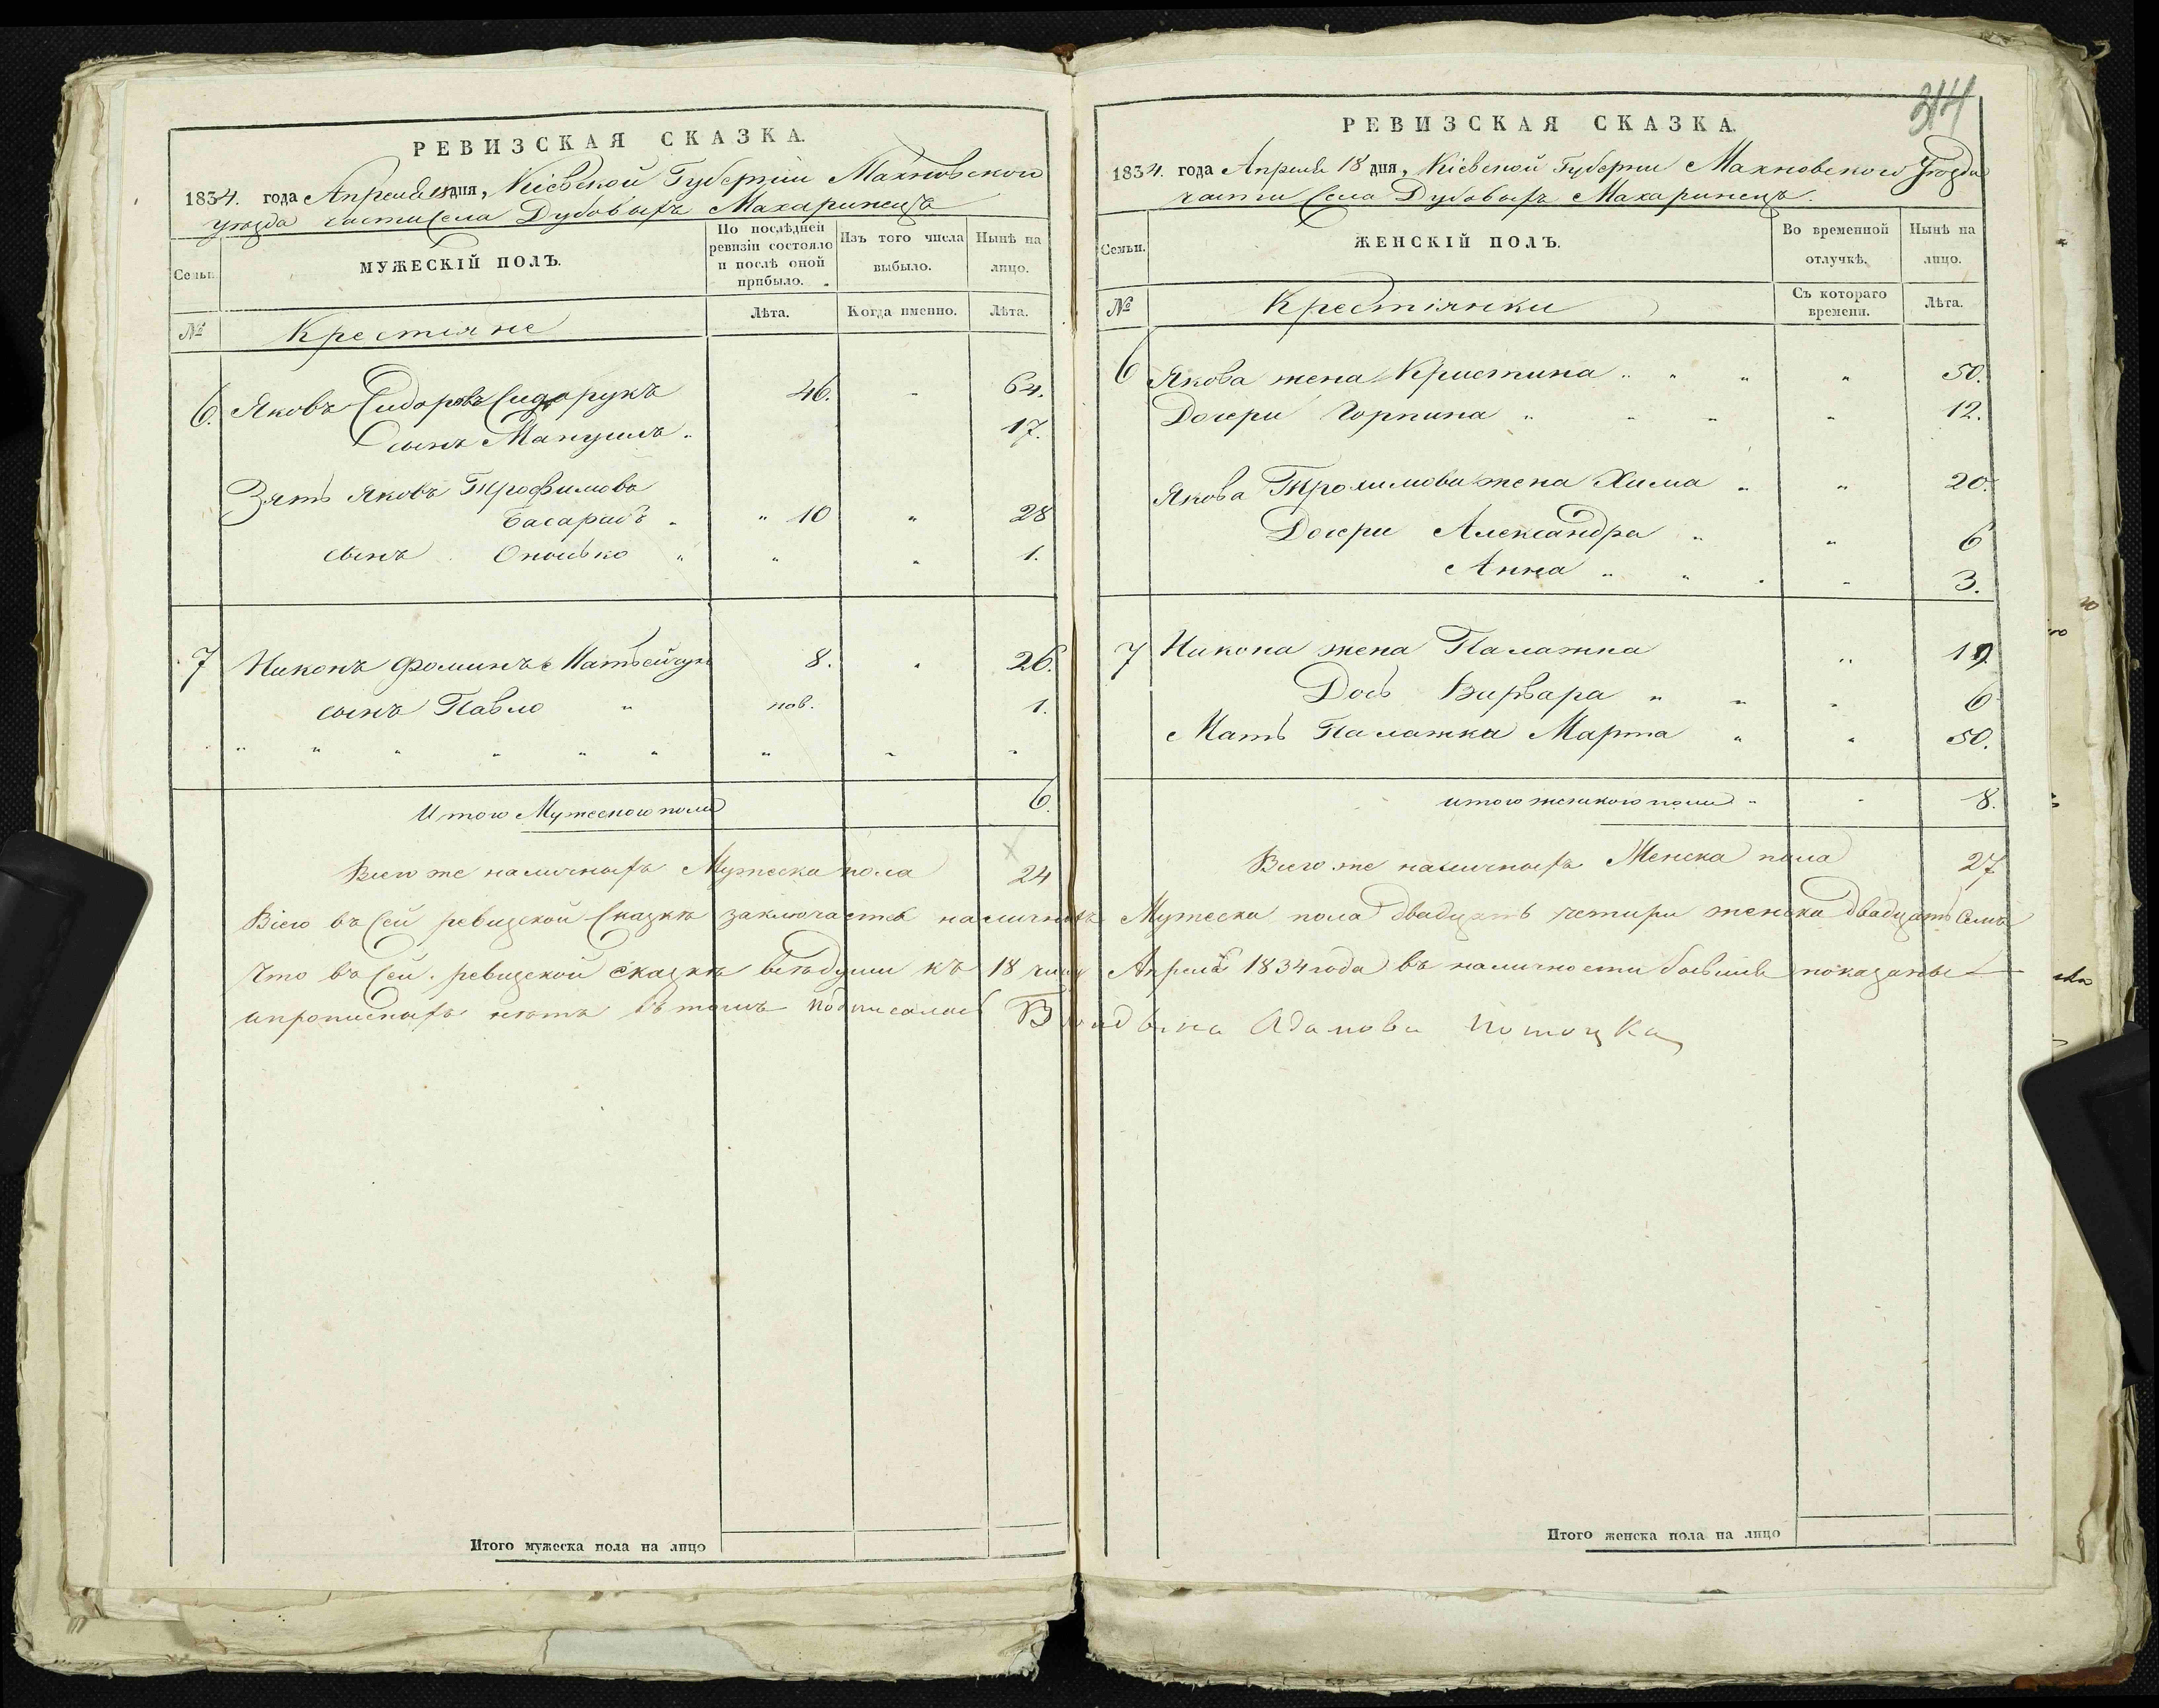 РЕВИЗСКАЯ СКАЗКА.
1834. года Апреля 18 дня, Кіевской Губерніи Махновского
уѣзда части села Дубовыхъ Махаринецъ
Семьи.
МУЖЕСКІЙ ПОЛЪ.
По послѣдней ревизіи состояло и послѣ оной прибыло.
Изъ того числа выбыло.
Нынѣ на лицо.
№
Крестіяне
Лѣта.
Когда именно.
Лѣта.
6. Яковъ Сидоровъ Сидорукъ 46. 64.
сынъ 17.
Зять Яковъ Трофимовъ
Басарабъ " 10 " 28
сынъ Онопко " " " 1.
7 Никонъ Фоминъ Матвейчук 8. " 26.
сынъ Павло " нов. 1.
Итого Мужеского пола 6.
Всего же наличныхъ Мужеска пола 24
314
РЕВИЗСКАЯ СКАЗКА.
1834. года Апреля 18 дня, Кіевской Губернии Махновского Уѣзда
части села Дубовыхъ Махаринецъ.
Семьи.
ЖЕНСКІЙ ПОЛЪ.
Во временной отлучкѣ.
Нынѣ на лицо.
№
Крестіянки
Съ котораго времени.
Лѣта.
6 Якова жена Кристина " " " " 50.
Дочери Горпина " " " " 12.
Якова Трохимова жена Хима " " 20.
Дочери Александра " " 6
Анна " " " " 3.
7 Никона жена Палажка " 19
Дочь Варвара " " " 6
Мать Палажка Марта " " 50.
итого женского пола " " 8.
Всего же наличныхъ Женска пола 27
Всего въ сей ревизской Сказкѣ заключается наличныхъ Мужеска пола двадцать четыри женска двадцать семъ
Что въ сей ревизской сказкѣ всѣ души къ 18 числу Апреля 1834 года въ наличности бывшие показаны
и прописныхъ нѣтъ въ томъ подписалась Адамова Потоцка
Итого мужеска пола на лицо
Итого женска пола на лицо